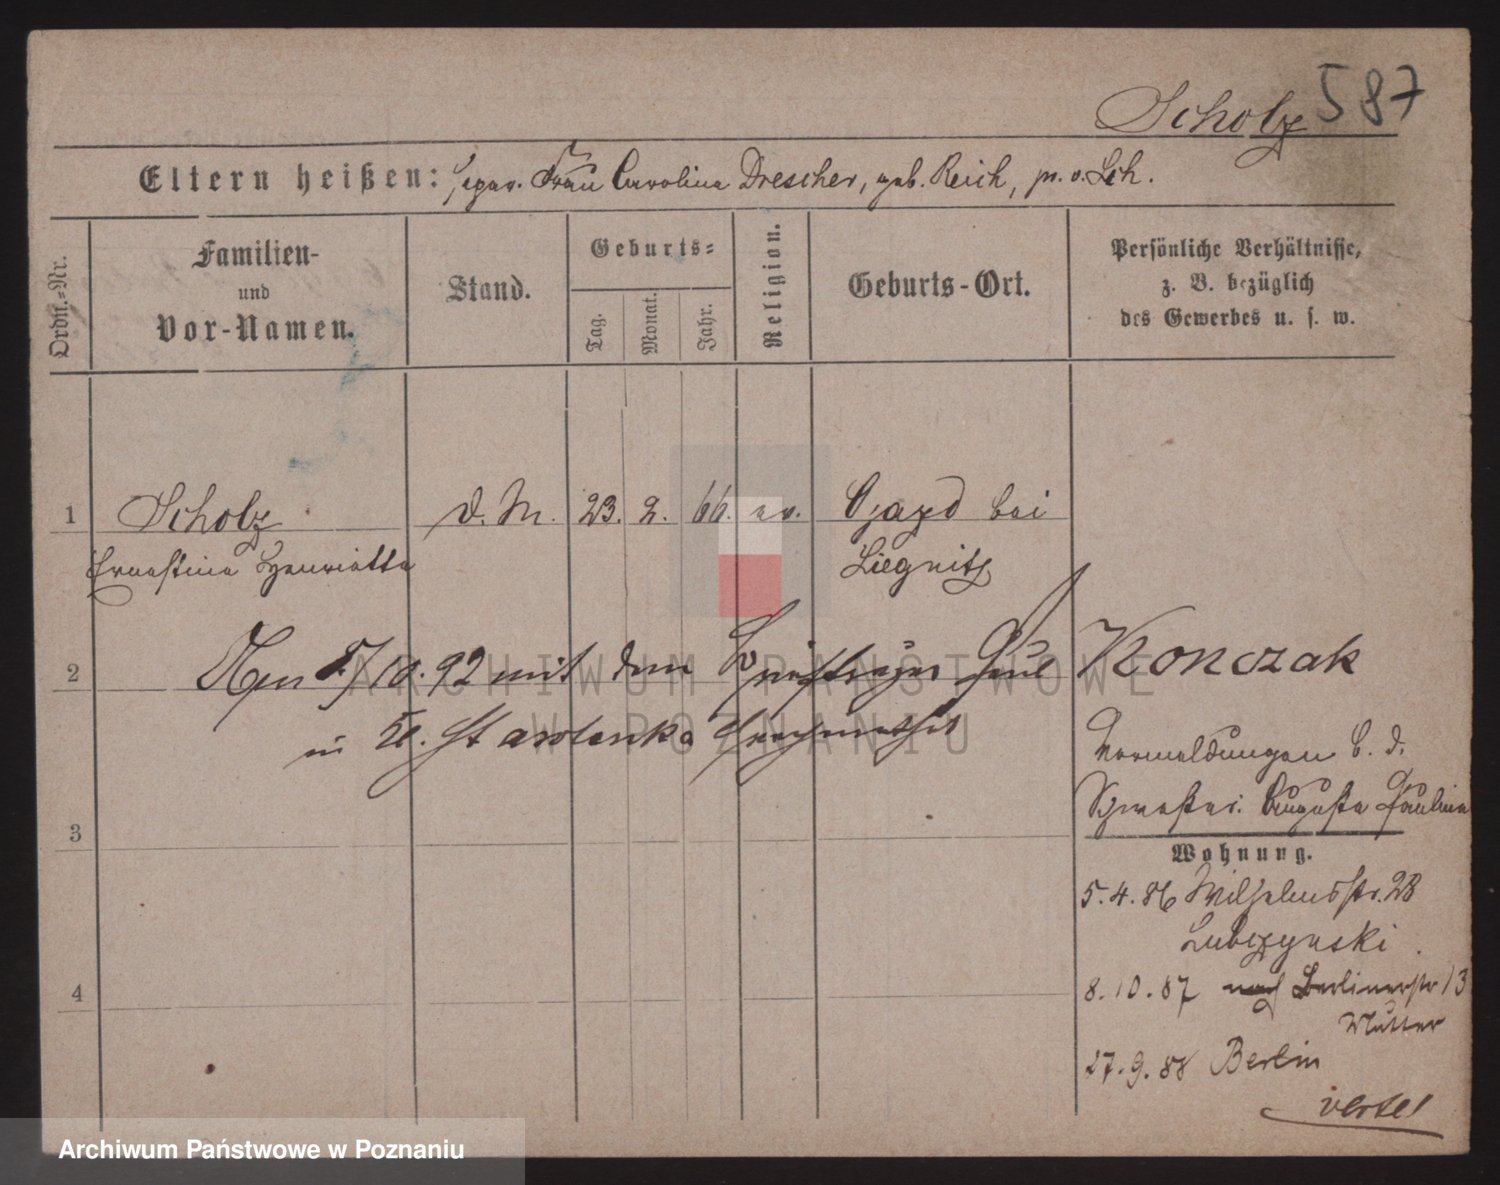 Scholz 587
Eltern heißen: separ. Frau Carolina Drescher, geb. Reich,
Ordn.-Nr.
Familien-
und
Vor-Namen.
Stand.
Geburts-
Tag.
Monat.
Jahr.
Religion.
Geburts-Ort.
Persönliche Verhältnisse,
z. B. bezüglich
des Gewerbes u. s. w.
1 Scholz d. M. 23. 2. 66. ev. bei
Ernestine Henriette Liegnitz
2 10. 92 mit dem Paul Konczak
in Starolenka
Vermeldungen b. d.
Schwester. Auguste Pauline
3
Wohnung.
5. 4. 86 Wilhelmsstr. 28
Lubczynski
4
8. 10. 87 nach Berlinerstr 13
Mutter
27. 9. 88 Berlin
verte!
ARCHIWUM PAŃSTWOWE
W POZNANIU
Archiwum Państwowe w Poznaniu